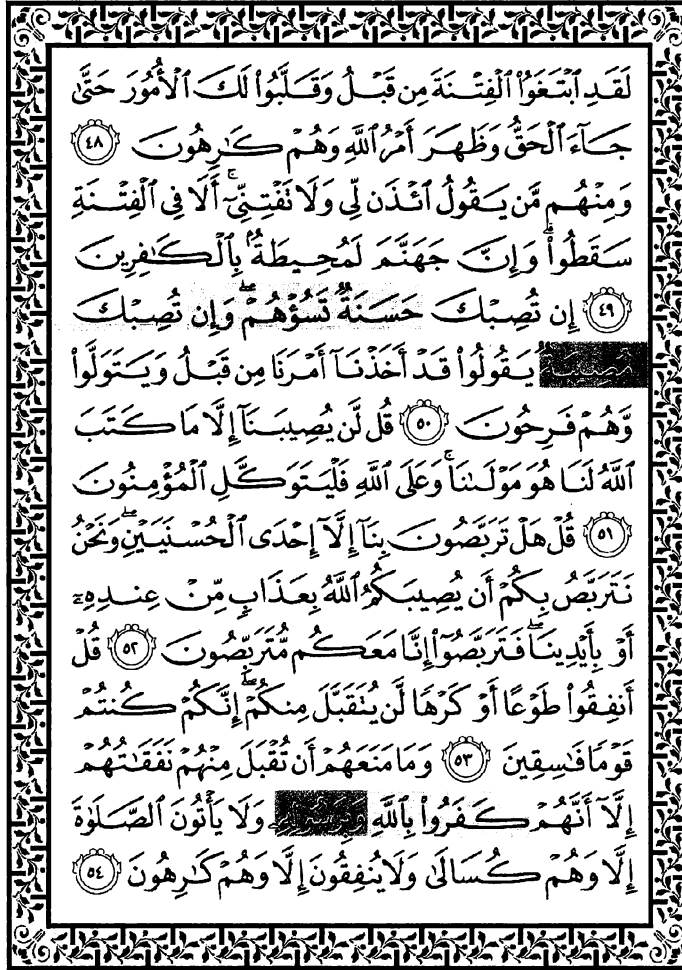 لَقَدِ ٱبْتَغَوُا۟ ٱلْفِتْنَةَ مِن قَبْلُ وَقَلَّبُوا۟ لَكَ ٱلْأُمُورَ حَتَّىٰ
جَآءَ ٱلْحَقُّ وَظَهَرَ أَمْرُ ٱللَّهِ وَهُمْ كَـٰرِهُونَ ٤٨
وَمِنْهُم مَّن يَقُولُ ٱئْذَن لِّى وَلَا تَفْتِنِّىٓ ۚ أَلَا فِى ٱلْفِتْنَةِ
سَقَطُوا۟ ۗ وَإِنَّ جَهَنَّمَ لَمُحِيطَةٌۢ بِٱلْكَـٰفِرِينَ
٤٩ إِن تُصِبْكَ حَسَنَةٌ تَسُؤْهُمْ ۖ وَإِن تُصِبْكَ
مُصِيبَةٌ يَقُولُوا۟ قَدْ أَخَذْنَآ أَمْرَنَا مِن قَبْلُ وَيَتَوَلَّوا۟
وَّهُمْ فَرِحُونَ ٥٠ قُل لَّن يُصِيبَنَآ إِلَّا مَا كَتَبَ
ٱللَّهُ لَنَا هُوَ مَوْلَىٰنَا ۚ وَعَلَى ٱللَّهِ فَلْيَتَوَكَّلِ ٱلْمُؤْمِنُونَ
٥١ قُلْ هَلْ تَرَبَّصُونَ بِنَآ إِلَّآ إِحْدَى ٱلْحُسْنَيَيْنِ ۖ وَنَحْنُ
نَتَرَبَّصُ بِكُمْ أَن يُصِيبَكُمُ ٱللَّهُ بِعَذَابٍ مِّنْ عِندِهِۦٓ
أَوْ بِأَيْدِينَا ۖ فَتَرَبَّصُوٓا۟ إِنَّا مَعَكُم مُّتَرَبِّصُونَ ٥٢ قُلْ
أَنفِقُوا۟ طَوْعًا أَوْ كَرْهًا لَّن يُتَقَبَّلَ مِنكُمْ ۖ إِنَّكُمْ كُنتُمْ
قَوْمًا فَـٰسِقِينَ ٥٣ وَمَا مَنَعَهُمْ أَن تُقْبَلَ مِنْهُمْ نَفَقَـٰتُهُمْ
إِلَّآ أَنَّهُمْ كَفَرُوا۟ بِٱللَّهِ وَبِرَسُولِهِۦ وَلَا يَأْتُونَ ٱلصَّلَوٰةَ
إِلَّا وَهُمْ كُسَالَىٰ وَلَا يُنفِقُونَ إِلَّا وَهُمْ كَـٰرِهُونَ ٥٤